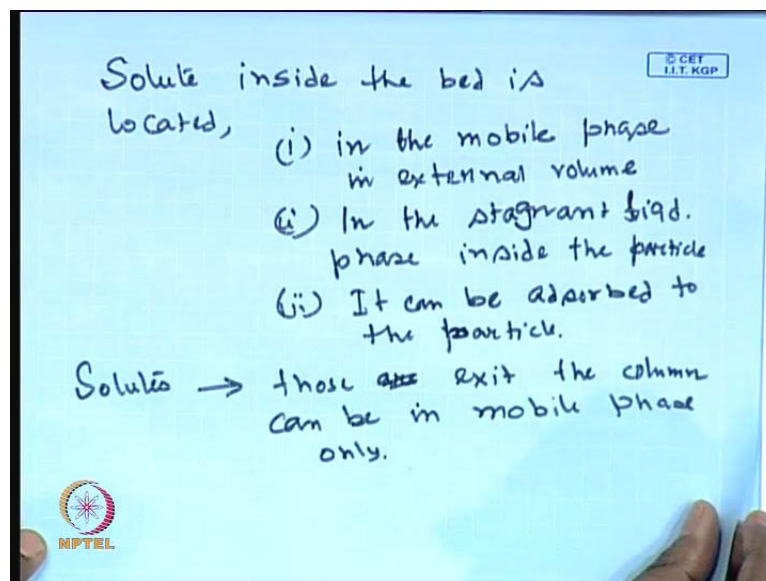 Solute inside the bed is
© CET
I.I.T. KGP
located,
(i) in the mobile phase
in external volume
(ii) In the stagnant liqd.
phase inside the particle
(iii) It can be adsorbed to
the particle.
Solutes → those exit the column
can be in mobile phase
only.
NPTEL